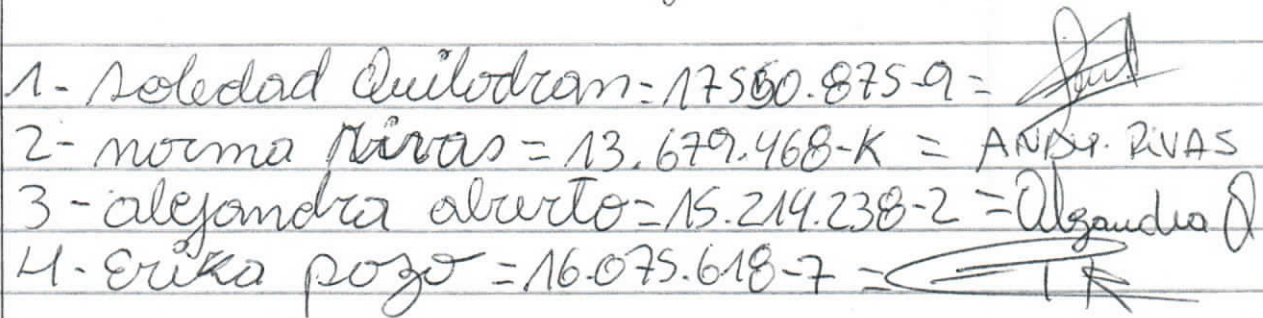 1- Soledad Quilodran = 17550.875-9 =
2- norma Rivas = 13.679.468-K = RIVAS
3- alejandra aburto = 15.214.238-2 = Alejandra
4- Erika pozo = 16.075.618-7 =